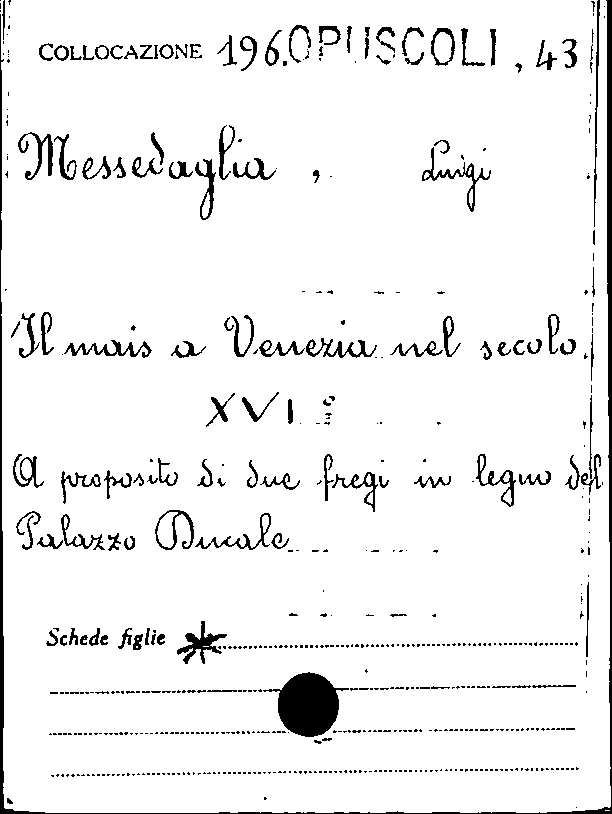 COLLOCAZIONE 196.OPUSCOLI, 43
Messedaglia, Luigi
Il mais a Venezia nel secolo
XVIº
A proposito di due fregi in legno del
Palazzo Ducale
Schede figlie *